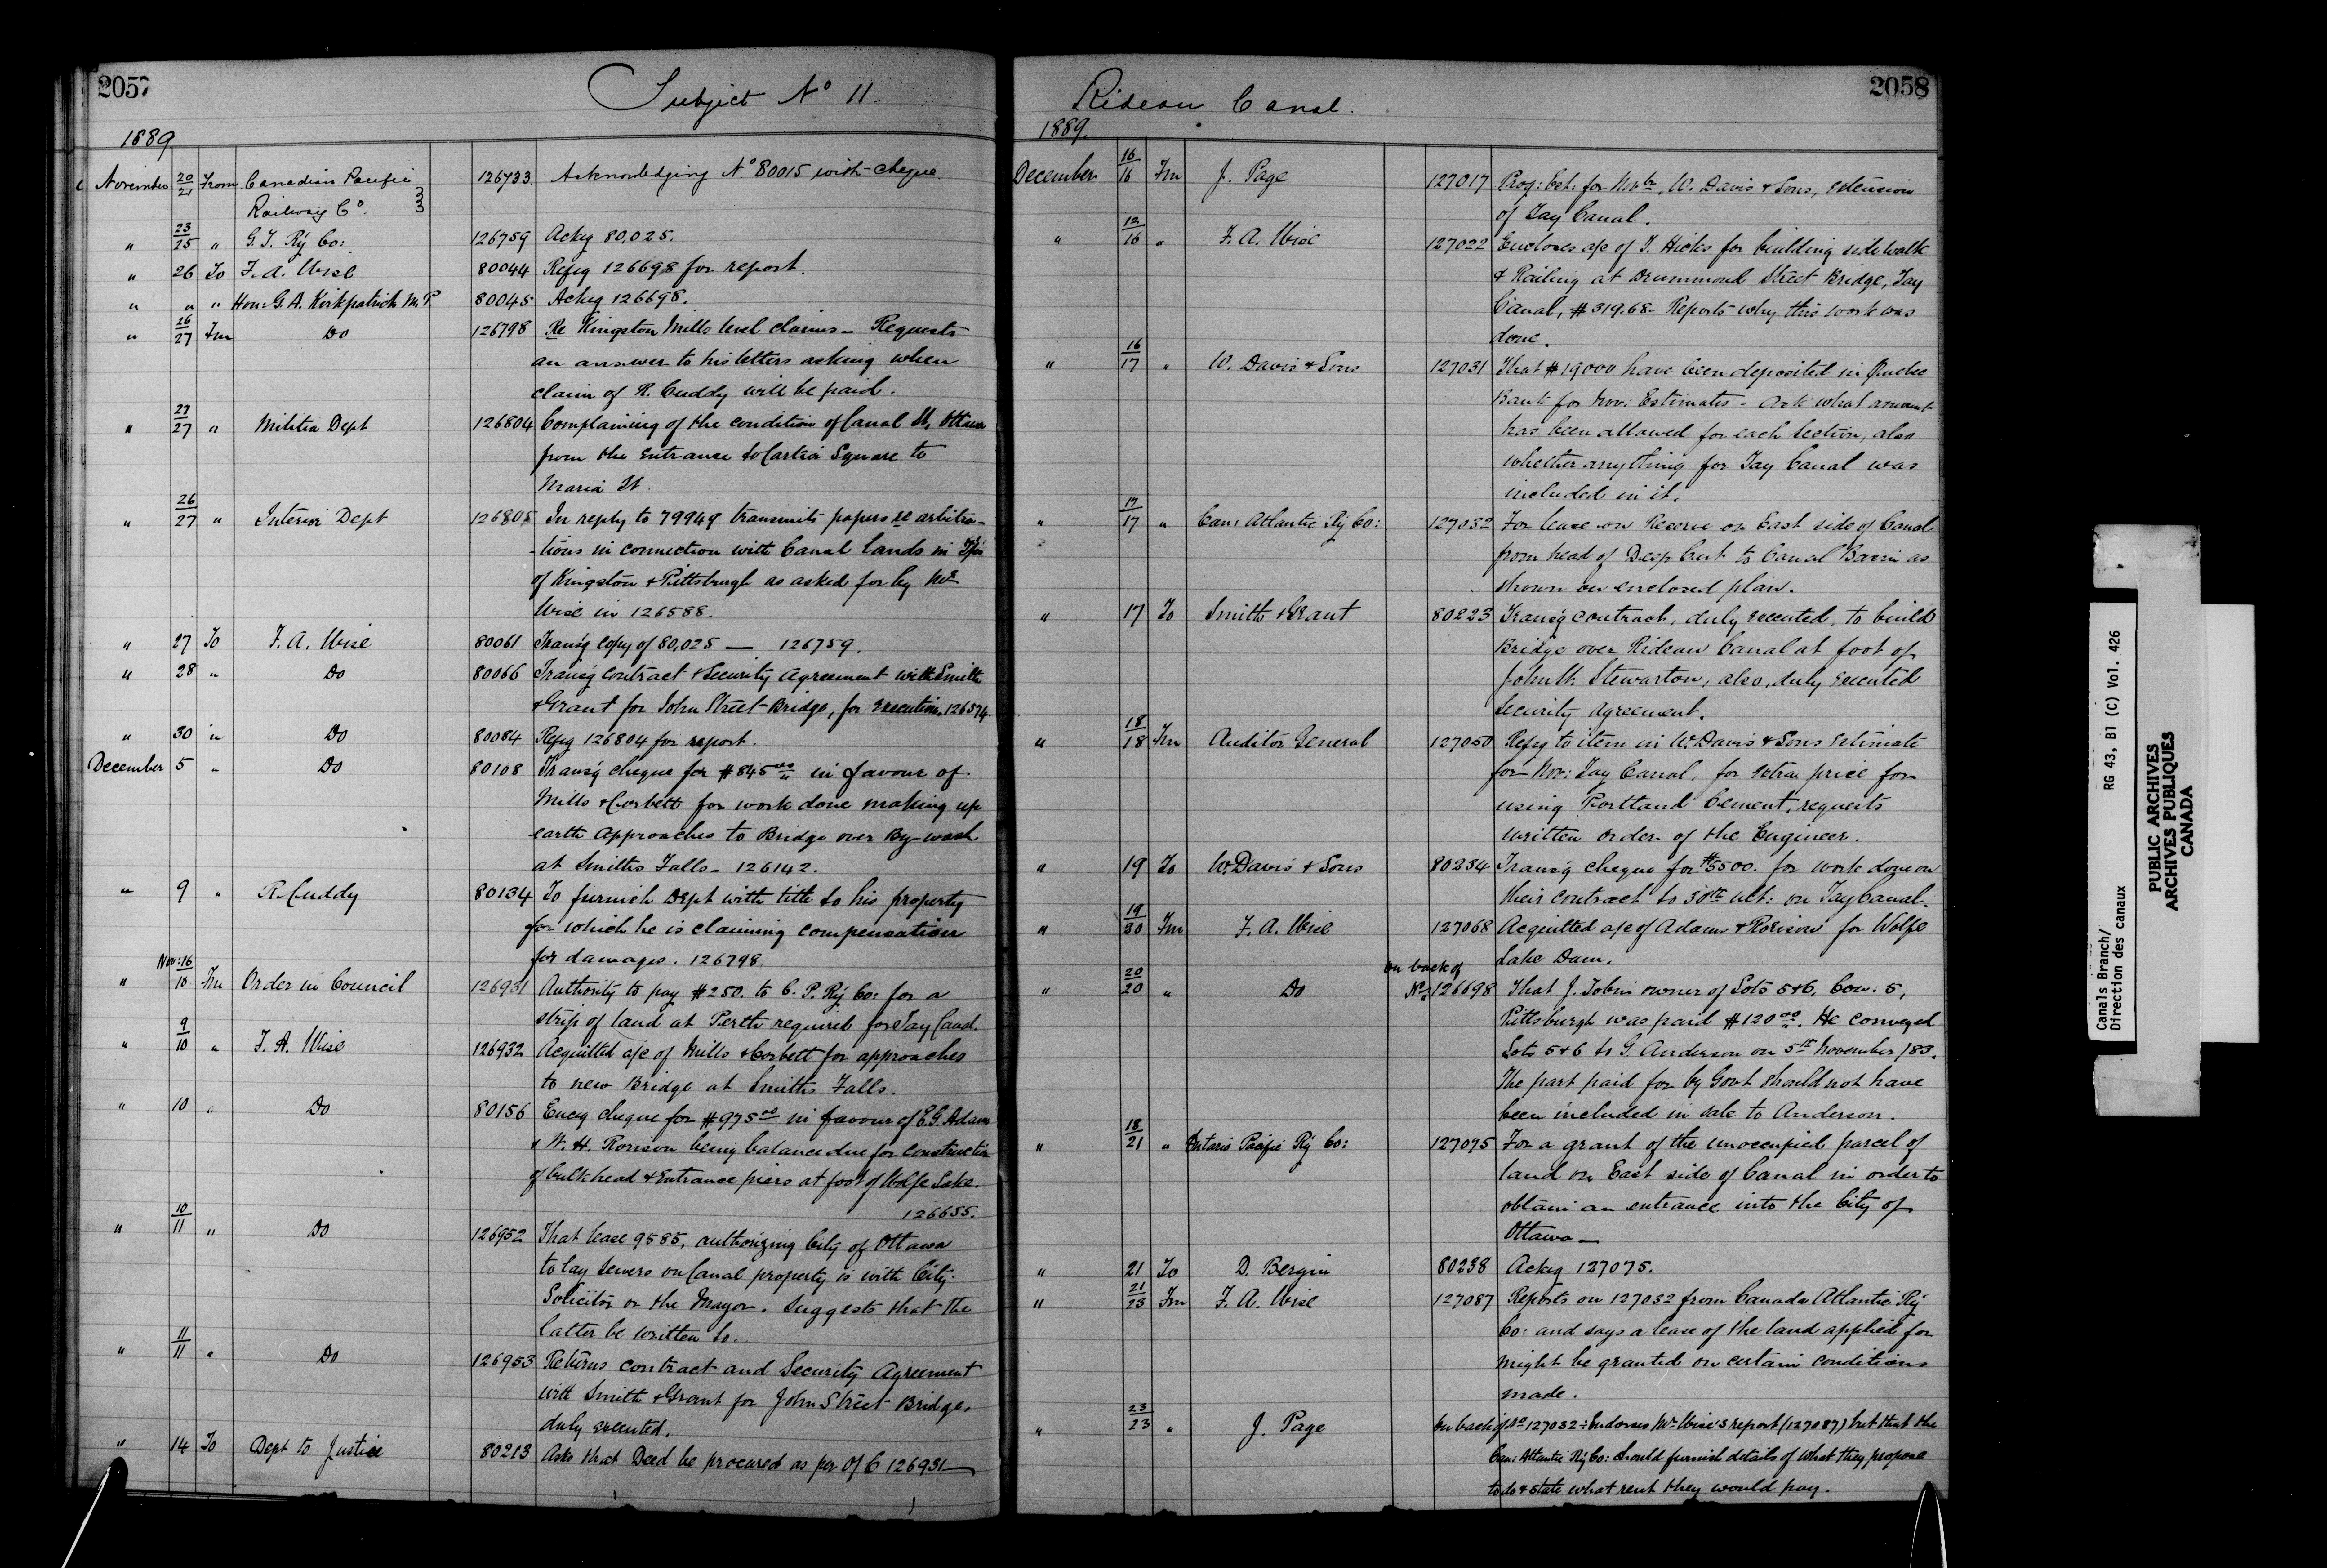 2057
Subject No 11.
1889
November 20/21 From Canadian Pacific 126733. Acknowledging No 80015 with cheque.
Railway Co.
" 23/25 " G. T. Ry Co: 126759 Ackg 80,025.
" 26 To F. A. Wise 80044 Refg 126698 for report.
" " " Hon: G. A. Kirkpatrick M.P. 80045 Ackg 126698.
" 26/27 Fm Do 126798 Re Kingston Mills level claims - Requests
an answer to his letters asking when
claim of R. Cuddy will be paid.
" 27/27 " Militia Dept 126804 Complaining of the condition of Canal St, Ottawa
from the entrance to Cartier Square to
Maria St.
" 26/27 " Interior Dept 126805 In reply to 79949 transmits papers re arbitra-
-tions in connection with Canal Lands in Tps
of Kingston & Pittsburgh as asked for by Mr
Wise in 126588.
" 27 To F. A. Wise 80061 Transg copy of 80,025 — 126759.
" 28 " Do 80066 Transg contract & Security Agreement with Smith
& Grant for John Street Bridge, for execution. 126574.
" 30 " Do 80084 Refg 126804 for report.
December 5 " Do 80108 Transg cheque for $845 00 in favour of
Mills & Corbett for work done making up
earth approaches to Bridge over By-wash
at Smiths Falls - 126142.
" 9 " R. Cuddy 80134 To furnish Dept with title to his property
for which he is claiming compensation
for damages. 126798
" Nov: 16/10 Fm Order in Council 126931 Authority to pay $250. to C. P. Ry Co: for a
strip of land at Perth required for Tay Canal.
" 9/10 " F. A. Wise 126932 Acquitted a/c of Mills & Corbett for approaches
to new Bridge at Smiths Falls.
" 10 " Do 80156 Encg cheque for $975 00 in favour of E. G. Adams
& W. H. Rorison being balance due for construction
of bulkhead & Entrance piers at foot of Wolfe Lake.
126655.
" 10/11 " Do 126952 That lease 9585, authorizing City of Ottawa
to lay sewers on Canal property is with City
Solicitor or the Mayor. Suggests that the
latter be written to.
" 11/11 " Do 126953 Returns contract and Security Agreement
with Smith & Grant for John Street Bridge,
duly executed.
" 14 To Dept to Justice 80213 Asks that Deed be procured as per O/C 126931—
2058
Rideau Canal.
1889.
December 16/16 Fm J. Page 127017 Prog: Est: for Novbr, W. Davis & Sons, extension
of Tay Canal.
" 12/16 " F. A. Wise 127022 Encloses a/c of T. Hicks for building sidewalk
& Railing at Drummond Street Bridge, Tay
Canal, $319.68 - Reports why this work was
done.
" 16/17 " W. Davis & Sons 127031 That $19000 have been deposited in Quebec
Bank for Nov: Estimates - Ask what amount
has been allowed for each Section, also
whether anything for Tay Canal was
included in it.
" 17/17 " Can: Atlantic Ry Co: 127032 For lease on Reserve on East side of Canal
from head of Deep Cut to Canal Basin as
shown on enclosed plan.
" 17 To Smith & Grant 80223 Transg contract, duly executed, to build
Bridge over Rideau Canal at foot of
John St. Stewarton, also, duly executed
security agreement.
" 18/18 Fm Auditor General 127050 Refg to item in W. Davis & Sons estimate
for Nov: Tay Canal, for extra price for
using Portland Cement, requests
written order of the Engineer.
" 19 To W. Davis & Sons 80234 Transg cheque for $5500. for work done on
their contract to 30th ult: on Tay Canal.
" 19/20 Fm F. A. Wise 127068 Acquitted a/c of Adams & Rorison for Wolfe
Lake Dam.
" 20/20 " Do on back of No 126698 That J. Tobin owner of Lots 5 & 6, Con: 5,
Pittsburgh was paid $120 00. He conveyed
Lots 5 & 6 to G. Anderson on 5th November /83.
The part paid for by Govt should not have
been included in sale to Anderson.
" 18/21 " Ontario Pacific Ry Co: 127075 For a grant of the unoccupied parcel of
land on East side of Canal in order to
obtain an entrance into the City of
Ottawa —
" 21 To D. Bergin 80238 Ackg 127075.
" 21/23 Fm F. A. Wise 127087 Reports on 127032 from Canada Atlantic Ry
Co: and says a lease of the land applied for
might be granted on certain conditions
made.
" 23/23 " J. Page on back of No 127032 : Endorses Mr Wise's report (127087) but that the
Can: Atlantic Ry Co: should furnish details of what they propose
to do & state what rent they would pay.
Canals Branch/
Direction des canaux
RG 43, B1 (C) Vol. 426
PUBLIC ARCHIVES
ARCHIVES PUBLIQUES
CANADA